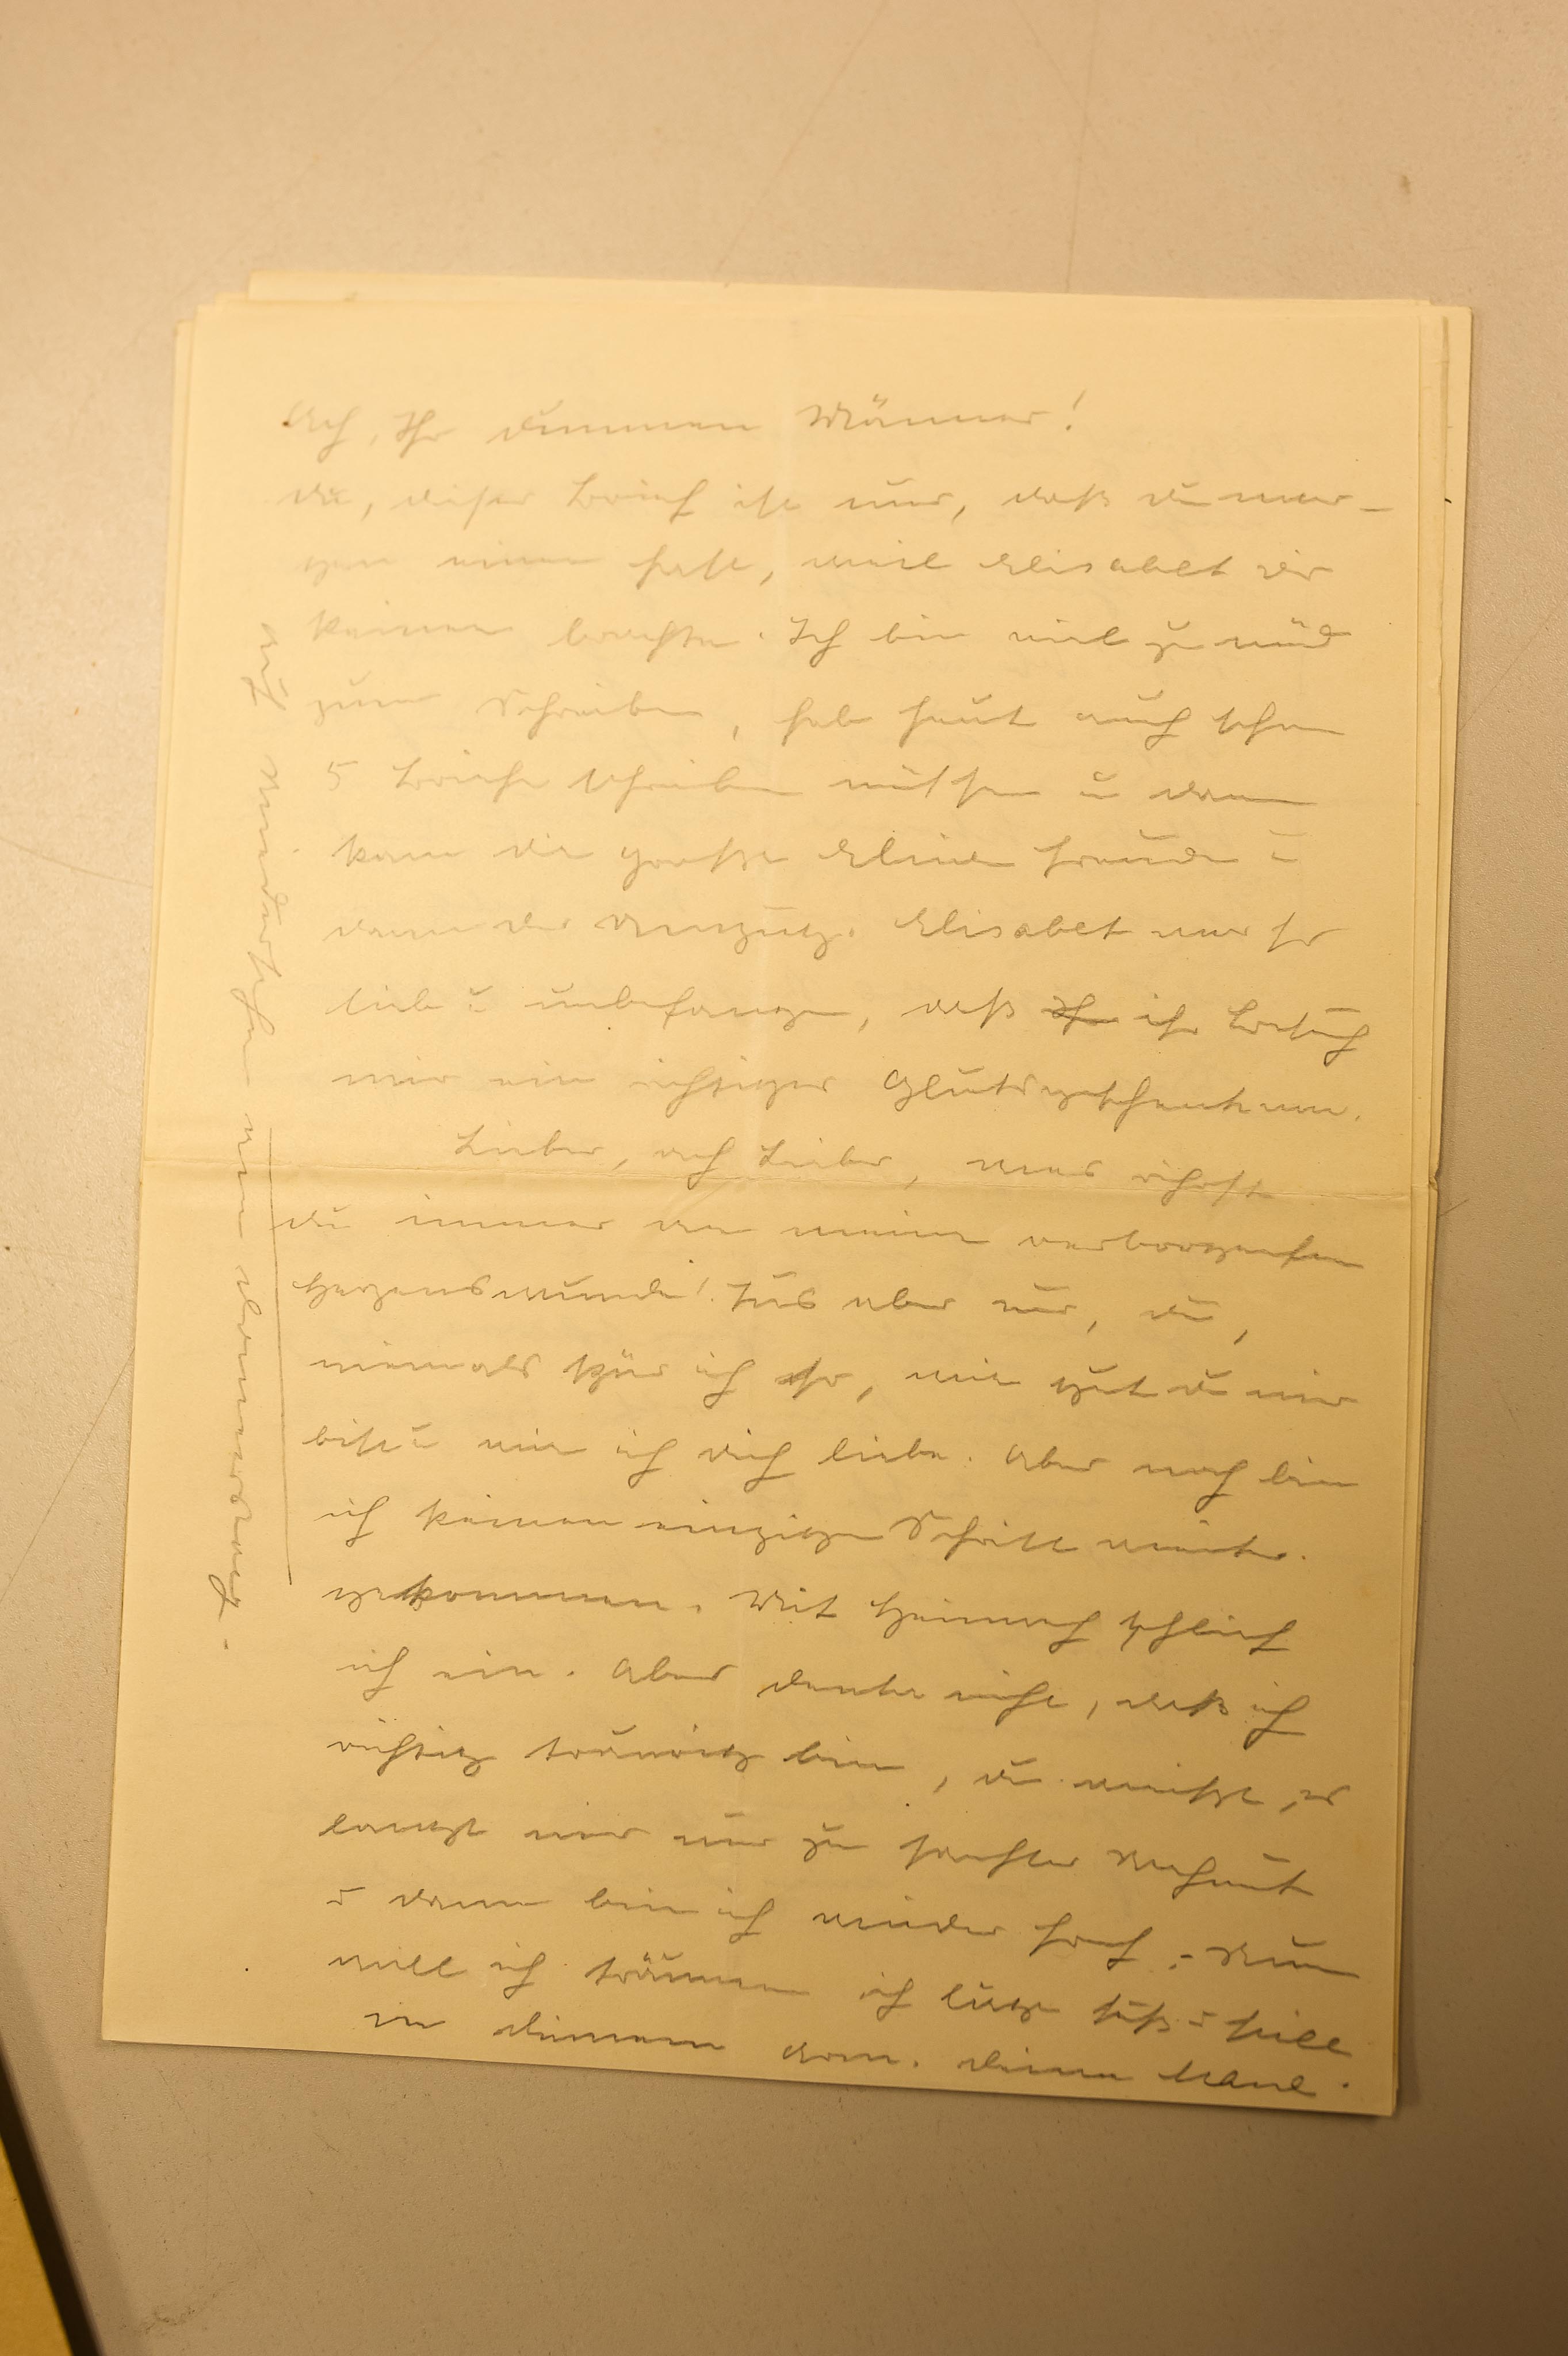 Ach, Ihr dummen Männer!
Du, dieser Brief ist nur, daß Du mor-
gen einen hast, weil Elisabet Dir
keinen brachte. Ich bin viel zu müd
zum Schreiben, hab heut auch schon
5 Briefe schreiben müssen u dann
kam die große kleine Freude u
dann der Umzug. Elisabet war so
lieb u unbefangen, daß ihr Besuch
mir ein richtiges Glücksgeschenk war.
Lieber, ach Lieber, was rührst
Du immer an meine verborgensten
Herzenswunde! Tus aber nur, Du,
niemals spür ich so, wie gut Du mir
bist u wie ich Dich liebe. Aber noch bin
ich keinen einzigen Schritt weiter
gekommen. Mit Heimweh schlief
ich ein. Aber denke nicht, daß ich
richtig traurig bin, Du weißt, es
langt mir nur zu sanfter Wehmut
u dann bin ich wieder froh. - Nun
will ich träumen ich liege süß u still
in Deinem Arm. Deine
Auf Wiedersehn am Donnerstag.